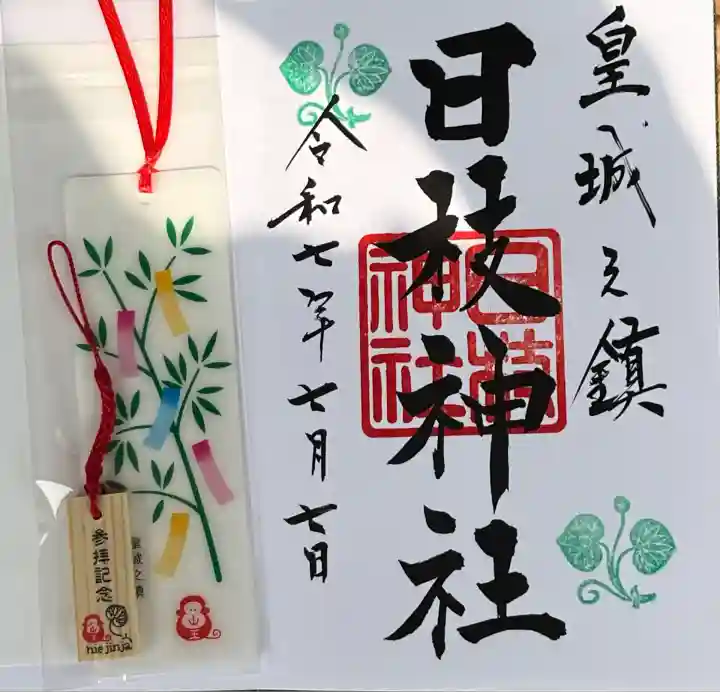 皇城之鎮
日枝神社
日枝神社
令和七年七月七日
皇城之鎮
参拝記念
山王
hie jinja